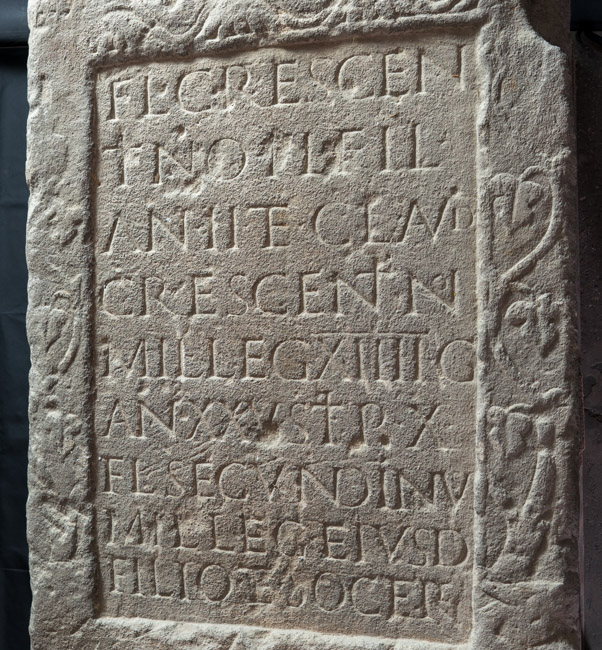 FL CRESCEN
TINO FL FIL
AN III ET CLAVD
CRESCENTINI
MIL LEG XIIII G
AN XXXV STIP X
FL SECVNDINVS
MIL LEG EIVSD
FILIO ET SOCER